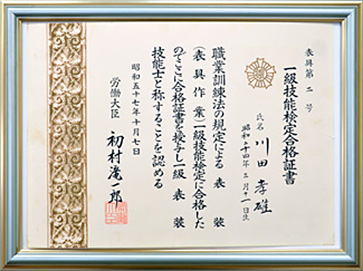 表具第二号
一級技能検定合格証書
氏名 川田孝雄
昭和二十四年二月十一日生
職業訓練法の規定による 表装
(表具作業)一級技能検定に合格した
のでここに合格証書を授与し一級表装
技能士と称することを認める
昭和五十七年十月七日
労働大臣 初村滝一郎